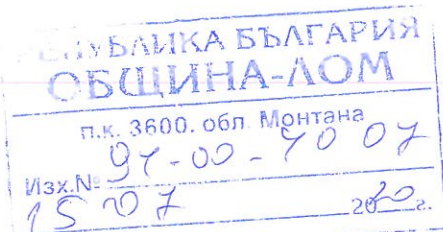 РЕПУБЛИКА БЪЛГАРИЯ
ОБЩИНА-ЛОМ
п.к. 3600, обл. Монтана
Изх.№ 91-00-40 07
15 07 2020 г.